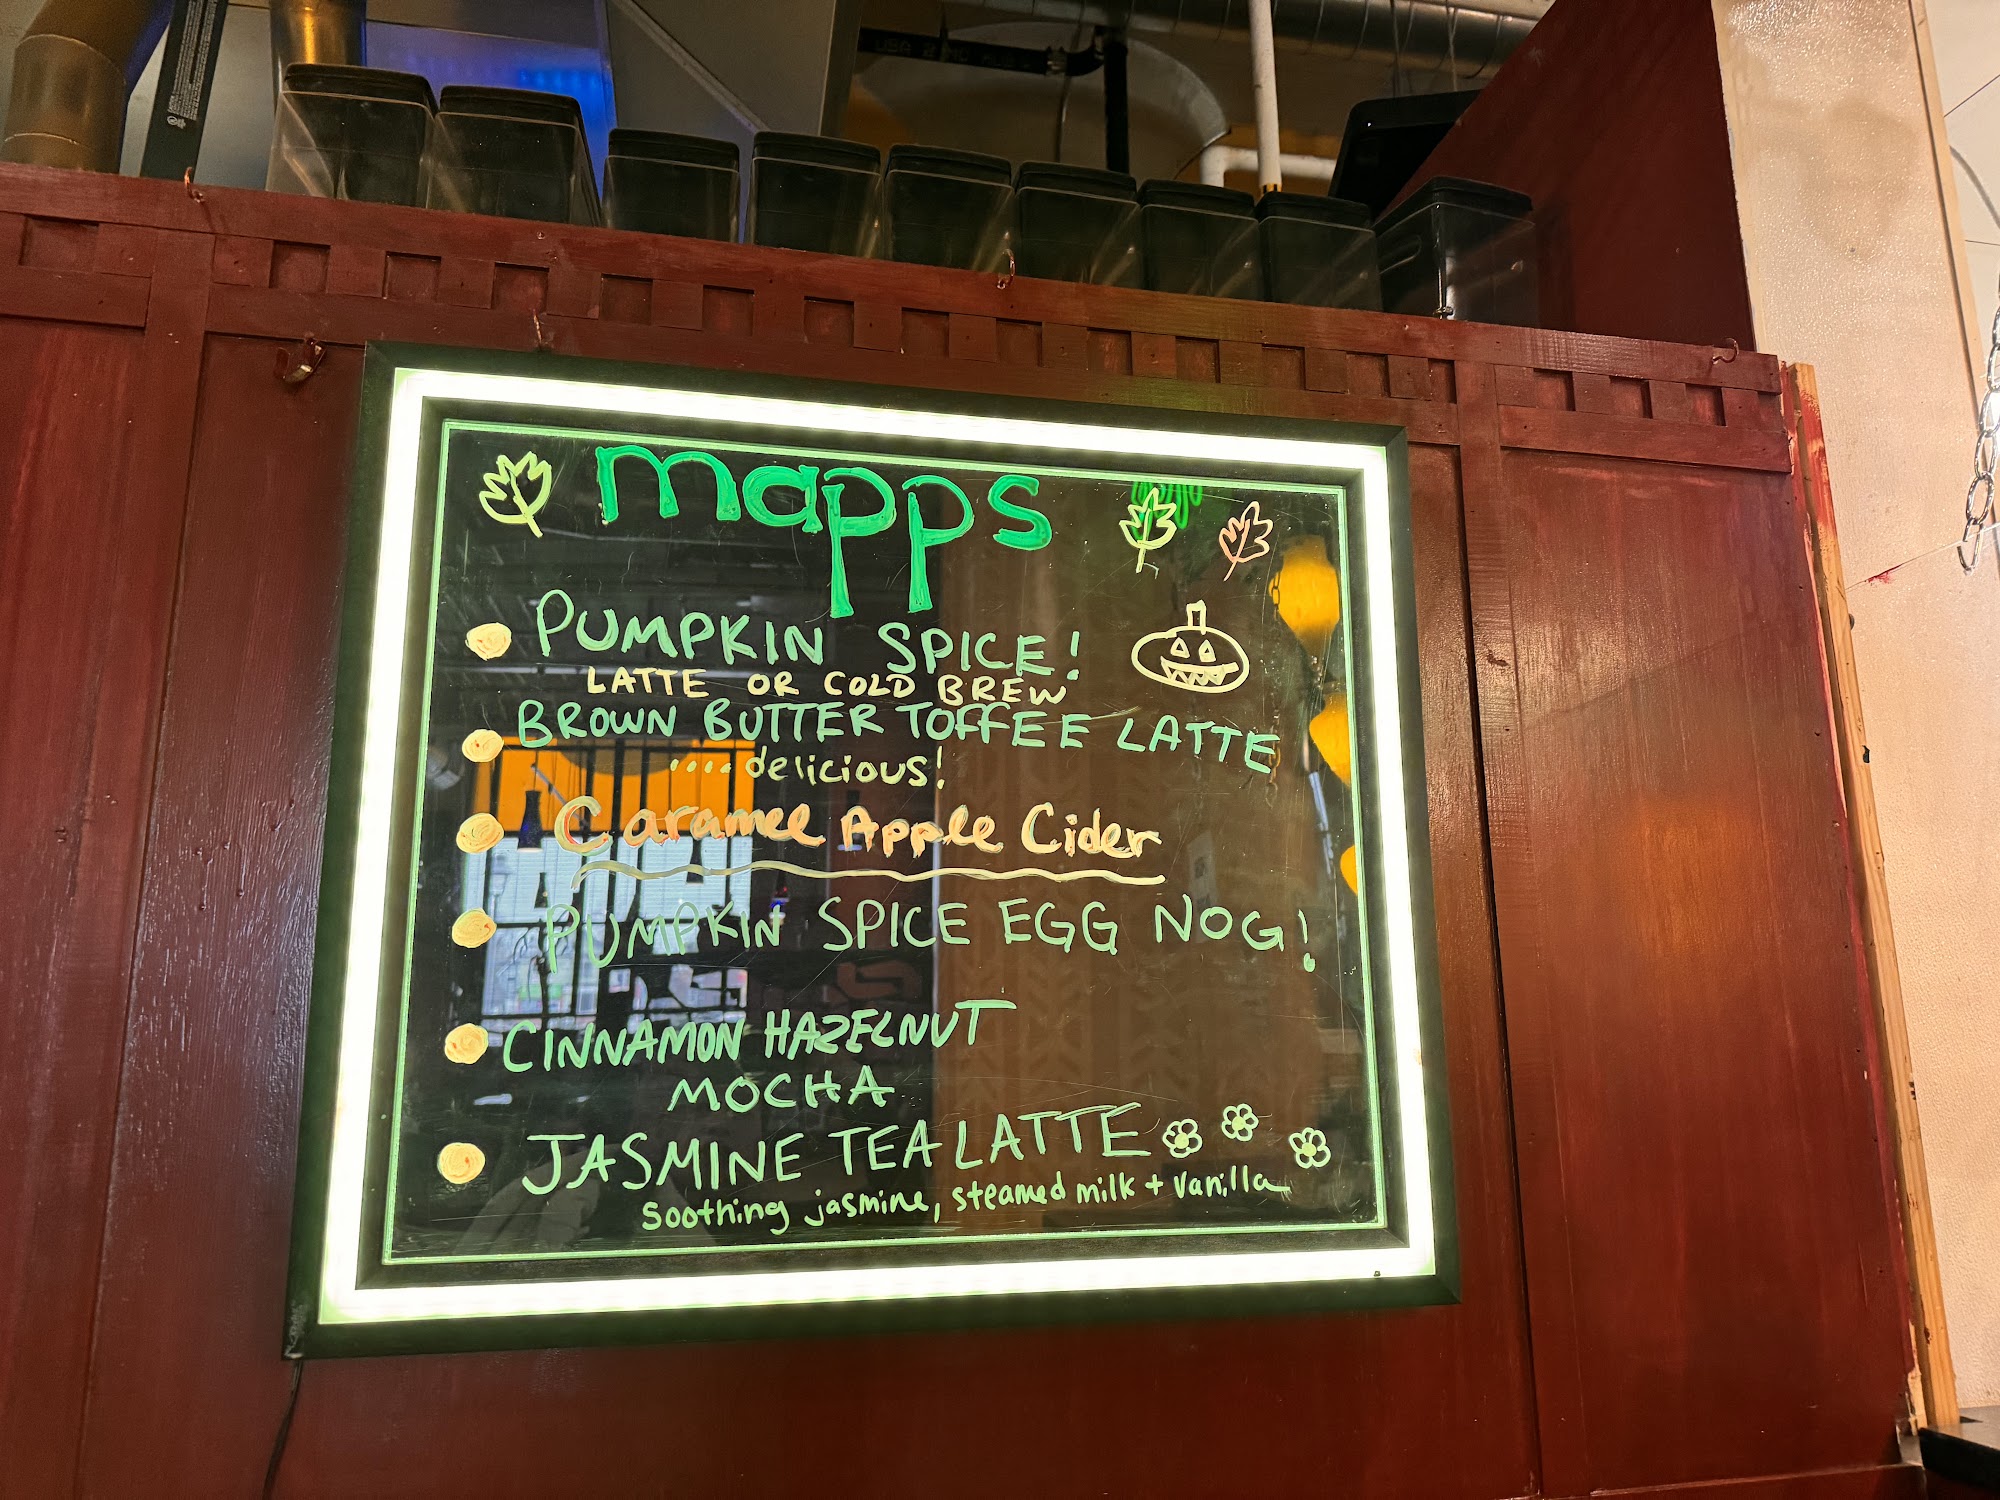 mapps
PUMPKIN SPICE!
LATTE OR COLD BREW
BROWN BUTTER TOFFEE LATTE
....delicious!
Caramel Apple Cider
PUMPKIN SPICE EGG NOG!
CINNAMON HAZELNUT
MOCHA
JASMINE TEA LATTE
Soothing jasmine, steamed milk + vanilla